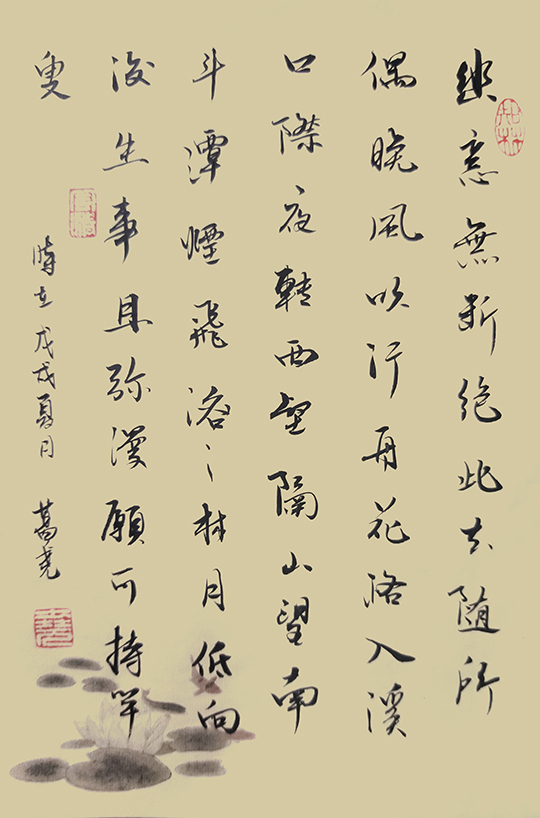 幽意無斷絕此去随所
偶晚風吹行舟花路入溪
口際夜轉西壑隔山望南
斗潭煙飛溶〻林月低向
後生事且弥漫願为持竿
叟
時在戊戌夏月 葛堯